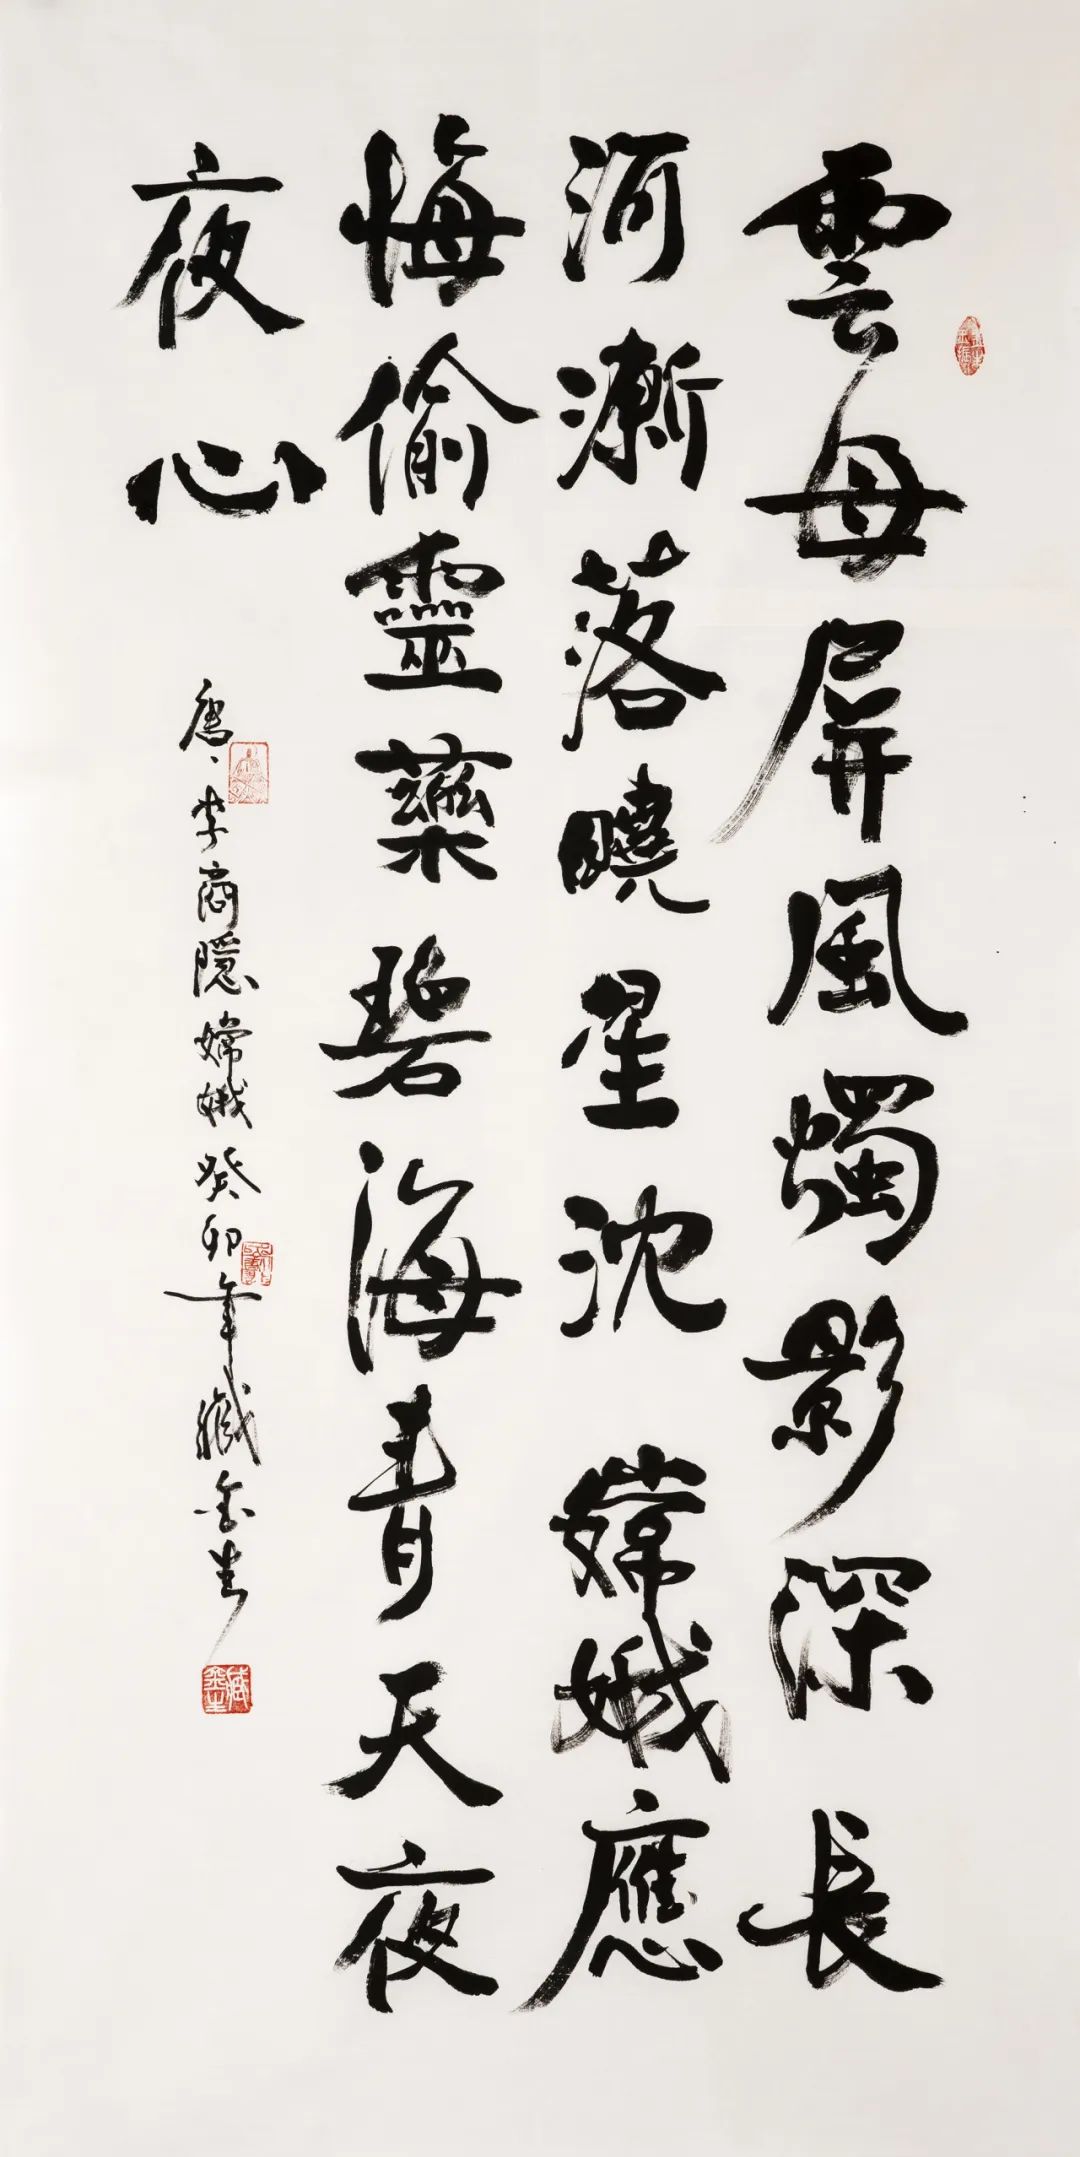 雲母屏風燭影深長
河漸落曉星沈嫦娥應
悔偷靈藥碧海青天夜
夜心
唐李商隱嫦娥癸卯年臧金生